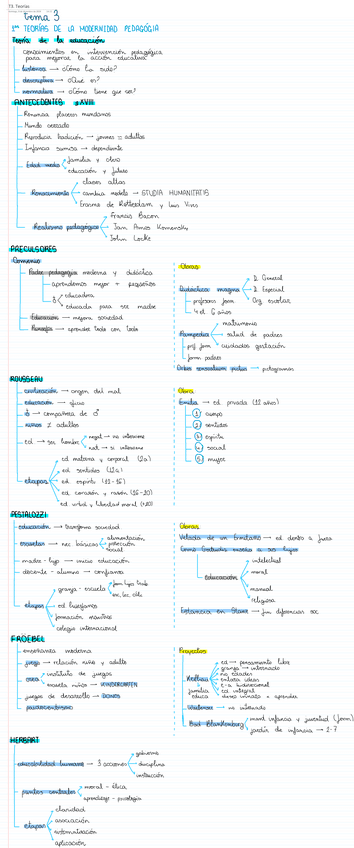 T3. Teorías
Tema 3
1ras TEORÍAS DE LA MODERNIDAD PEDAGÓGIA
Teoría de la educación
conocimientos en intervención pedagógica
para mejorar la acción educativa
histórica → ¿Cómo ha sido?
descriptiva → ¿Qué es?
normativa → ¿Cómo tiene que ser?
ANTECEDENTES s.XVIII
Renuncia placeres mundanos
Mundo cerrado
Reproducir tradición → jóvenes = adultos
Infancia sumisa → dependiente
Edad media
familia y clero
educación y futuro
Renacimiento
clases altas
cambia modelo → STUDIA HUMANITATIS
Erasmo de Rotterdam y Luis Vives
Realismo pedagógico
Francis Bacon
Jan Amos Komensky
John Locke
PRECURSORES
Comenio
Padre pedagogía moderna y didáctica
aprendemos mejor + pequeños
educadora
educada para ser madre
Educación → mejora sociedad
Pansofía → aprender todo con todo
Obras
Didáctica magna
D. General
D. Especial
Org. escolar
profesores form
4 et. 6 años
Pampedia
matrimonio
salud de padres
cuidados gestación
prof form
form padres
Orbis sensualium pictus → pictogramas
ROUSSEAU
civilización → origen del mal
educación → oficio
♀ → compañera de ♂
niños ≠ adultos
ed → ser hombre
negat → no interviene
nat → si interviene
etapas
ed materna y corporal (2a)
ed sentidos (12a)
ed espíritu (12-15)
ed corazón y razón (15-20)
ed virtud y libertad moral (+20)
Obra
Emilio → ed. privada (12 años)
1 cuerpo
2 sentidos
3 espíritu
4 social
5 mujer
PESTALOZZI
educación → transforma sociedad
escuelas → nec básicas
alimentación
protección
social
madre-hijo → inicio educación
docente-alumno → confianza
etapas
granja-escuela
ed huérfanos
formación maestros
colegio internacional
Obras
Velada de un Ermitaño → ed dentro a fuera
Como Gertrudis enseña a sus hijos
Educación
intelectual
moral
manual
religiosa
Estancias en Stans → sin diferencias soc
FROEBEL
enseñanza moderna
juego → relación niño y adulto
crea
instituto de juegos
escuela niños → KINDERGARTEN
juegos de desarrollo → DONES
paidocentrismo
Proyectos
Keilhau
ed → pensamiento libre
granja → internado
no edades
e-a bidireccional
ed integral
familia educa
deseo innato → aprender
no internado
Bad Blankenburg
mand infancia y juventud (form)
jardín de infancia → 1-7
HERBART
educabilidad humana → 3 acciones
gobierno
disciplina
instrucción
puntos centrales
moral - ética
aprendizaje - psicología
etapas
claridad
asociación
sistematización
aplicación